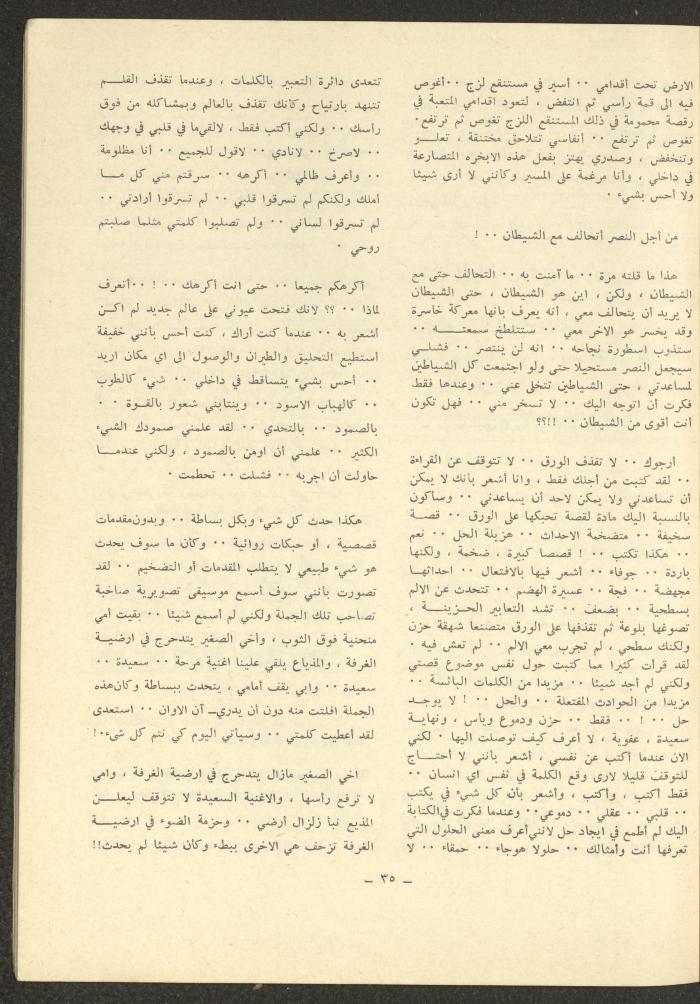 الارض تحت أقدامي ٠٠ أسير في مستنقع لزج ٠٠ أغوص
فيه الى قمة رأسي ثم انتفض ، لتعود اقدامي المتعبة في
رقصة محمومة في ذلك المستنقع اللزج تغوص ثم ترتفع٠
تغوص ثم ترتفع ٠٠ أنفاسي تتلاحق مختنقة ، تعلـــو
وتنخفض ، وصدري يهتز بفعل هذه الابخره المتصارعة
في داخلي ، وأنا مرغمة على المسير وكأنني لا أرى شيئا
ولا أحس بشيء ٠
من أجل النصر أتحالف مع الشيطان ٠٠ !
هذا ما قلته مرة ٠٠ ما آمنت به ٠٠ التحالف حتى مع
الشيطان ، ولكن ، اين هو الشيطان ، حتى الشيطان
لا يريد أن يتحالف معي ، أنه يعرف بانها معركة خاسرة
وقد يخسر هو الاخر معي ٠٠ ستتلطخ سمعتـــــه ٠٠
ستذوب اسطورة نجاحه ٠٠ انه لن ينتصر ٠٠ فشلـــي
سيجعل النصر مستحيلا حتى ولو اجتمعت كل الشياطين
لمساعدتي ، حتى الشياطين تتخلى عني ٠٠ وعندها فقط
فكرت أن اتوجه اليك ٠٠ لا تسخر مني ٠٠ فهل تكون
أنت أقوى من الشيطان ٠٠ !!؟؟
أرجوك ٠٠ لا تقذف الورق ٠٠ لا تتوقف عن القراءة
٠٠ لقد كتبت من أجلك فقط ، وانا أشعر بأنك لا يمكن
أن تساعدني ولا يمكن لاحد أن يساعدني ٠٠ وساكون
بالنسبة اليك مادة لقصة تحبكها على الورق ٠٠ قصـــة
سخيفة ٠٠ متضخمة الاحداث ٠٠ هزيلة الحل ٠٠ نعم
٠٠ هكذا تكتب ٠٠ ! قصصا كبيرة ، ضخمة ، ولكنها
باردة ٠٠ جوفاء ٠٠ أشعر فيها بالافتعال ٠٠ احداثهــا
مجهضة ٠٠ فجة ٠٠ عسيرة الهضم ٠٠ تتحدث عن الالم
بسطحية ٠٠ بضعف ٠٠ تشد التعابير الحـزينـــــة ،
تصوغها بلوعة ثم تقذفها على الورق متصنعا شهقة حزن
ولكنك سطحي ، لم تجرب معي الالم ٠٠ لم تعش فيه ٠
لقد قرأت كثيرا مما كتبت حول نفس موضوع قصتي
ولكني لم أجد شيئا ٠٠ مزيدا من الكلمات البائسة ٠٠
مزيدا من الحوادث المفتعلة ٠٠ والحل ٠٠ ! لا يوجـد
حل ٠٠ ! ٠٠ فقط ٠٠ حزن ودموع ويأس ، ونهايـــة
سعيدة ، عفوية ، لا أعرف كيف توصلت اليها ٠ لكني
الان عندما أكتب عن نفسي ، أشعر بأنني لا أحتـــاج
للتوقف قليلا لارى وقع الكلمة في نفس اي انسان ٠٠
فقط أكتب ، وأكتب ، وأشعر بأن كل شيء في يكتب
٠٠ قلبي ٠٠ عقلي ٠٠ دموعي٠٠ وعندما فكرت في الكتابة
اليك لم أطمع في ايجاد حل لانني أعرف معنى الحلول التي
تعرفها أنت وأمثالك ٠٠ حلولا هوجاء ٠٠ حمقاء ٠٠ لا
تتعدى دائرة التعبير بالكلمات ، وعندما تقذف القلـــم
تتنهد بارتياح وكأنك تقذف بالعالم وبمشاكله من فوق
رأسك ٠٠ ولكني أكتب فقط ، لالقي ما في قلبي في وجهك
٠٠ لاصرخ ٠٠ لانادي ٠٠ لاقول للجميع ٠٠ أنا مظلومة
٠٠ وأعرف ظالمي ٠٠ أكرهه ٠٠ سرقتم مني كل مـــا
أملك ولكنكم لم تسرقوا قلبي ٠٠ لم تسرقوا أرادتي ٠٠
لم تسرقوا لساني ٠٠ ولم تصلبوا كلمتي مثلما صلبتم
روحي ٠
أكرهكم جميعا ٠٠ حتى انت أكرهك ٠٠ ! ٠٠ أتعرف
لماذا ٠٠ ؟؟ لانك فتحت عيوني على عالم جديد لم اكـن
أشعر به ٠٠ عندما كنت أراك ، كنت أحس بأنني خفيفة
أستطيع التحليق والطيران والوصول الى اي مكان اريد
٠٠ أحس بشيء يتساقط في داخلي ٠٠ شيء كالطوب
٠٠ كالهباب الاسود ٠٠ وينتابني شعور بالقـــوة ٠ ٠
بالصمود ٠٠ بالتحدي ٠٠ لقد علمني صمودك الشيء
الكثير ٠٠ علمني أن اومن بالصمود ، ولكني عندمـــا
حاولت أن اجربه ٠٠ فشلت ٠٠ تحطمت ٠
هكذا حدث كل شيء وبكل بساطة ٠٠ وبدون مقدمات
قصصية ، أو حبكات روائية ٠٠ وكأن ما سوف يحدث
هو شيء طبيعي لا يتطلب المقدمات أو التضخيم ٠٠ لقد
تصورت بأنني سوف أسمع موسيقى تصويرية صاخبة
تصاحب تلك الجملة ولكني لم أسمع شيئا ٠٠ بقيت أمي
منحنية فوق الثوب ، وأخي الصغير يتدحرج في ارضيـة
الغرفة ، والمذياع يلقي علينا اغنية مرحة ٠٠ سعيدة ٠٠
سعيدة ٠٠ وابي يقف أمامي ، يتحدث ببساطة وكأن هذه
الجملة افلتت منه دون أن يدري_ آن الاوان ٠٠ استعدى
لقد أعطيت كلمتي ٠٠ وسيأتي اليوم كي نتم كل شيء٠!
اخي الصغير مازال يتدحرج في ارضية الغرفة ، وامي
لا ترفع رأسها ، والاغنية السعيدة لا تتوقف ليعلـــن
المذيع نبأ زلزال أرضي ٠٠ وحزمة الضوء في ارضيـــة
الغرفة تزحف هي الاخرى ببطء وكأن شيئا لم يحدث!!
_ ٣٥ _